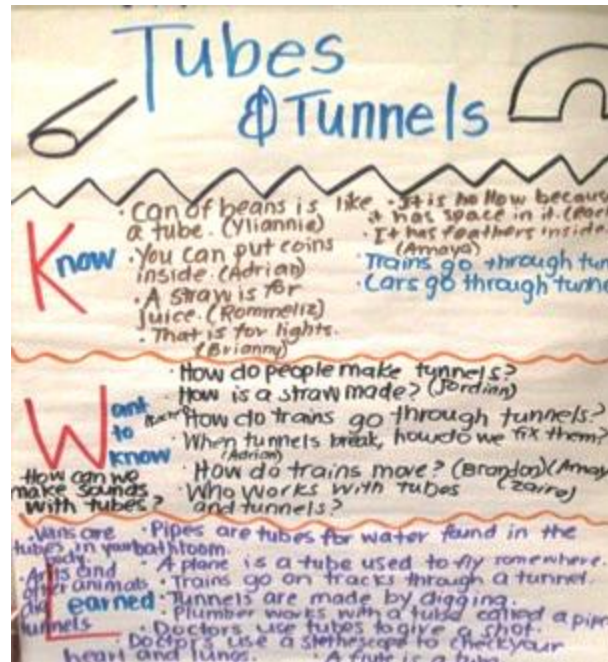 Tubes
& Tunnels
Know
· Can of beans is like
a tube. (Yliannie)
· You can put coins
inside. (Adrian)
· A straw is for
juice. (Rommeliz)
· That is for lights.
(Brianny)
· It is hollow becau
it has space in it.
· It has feathers inside.
(Amaya)
· Trains go through tun
· Cars go through tunne
Want
to
know
· How do people make tunnels?
· How is a straw made? (Jordian)
· How do trains go through tunnels?
· When tunnels break, how do we fix them?
(Adrian)
· How do trains move? (Brandon) (Amay
· Who works with tubes
and tunnels?
How can we
make sounds
with tubes?
Learned
are
tubes in your
body.
and
other animals
dig
tunnels
· Pipes are tubes for water found in the
bathroom.
· A plane is a tube used to fly somewhere.
· Trains go on tracks through a tunnel.
· Tunnels are made by digging.
· Plumber works with a tube called a pipe
· Doctors use tubes to give a shot.
· Doctors use a stethescope to check your
heart and lungs.
· A flute is a tub